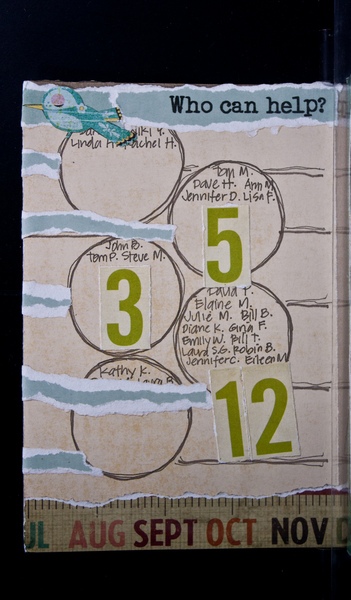 Who can help?
Linda F. Rachel H.
Tom M.
Dave H. Ann M.
Jennifer D. Lisa F.
5
John B.
Tom P. Steve M.
3
David F.
Elaine M.
Julie M. Bill B.
Diane K. Gina F.
Emily W. Bill T.
Laura S.G. Robin B.
Jennifer C. Eileen M
Kathy K.
12
UL AUG SEPT OCT NOV D